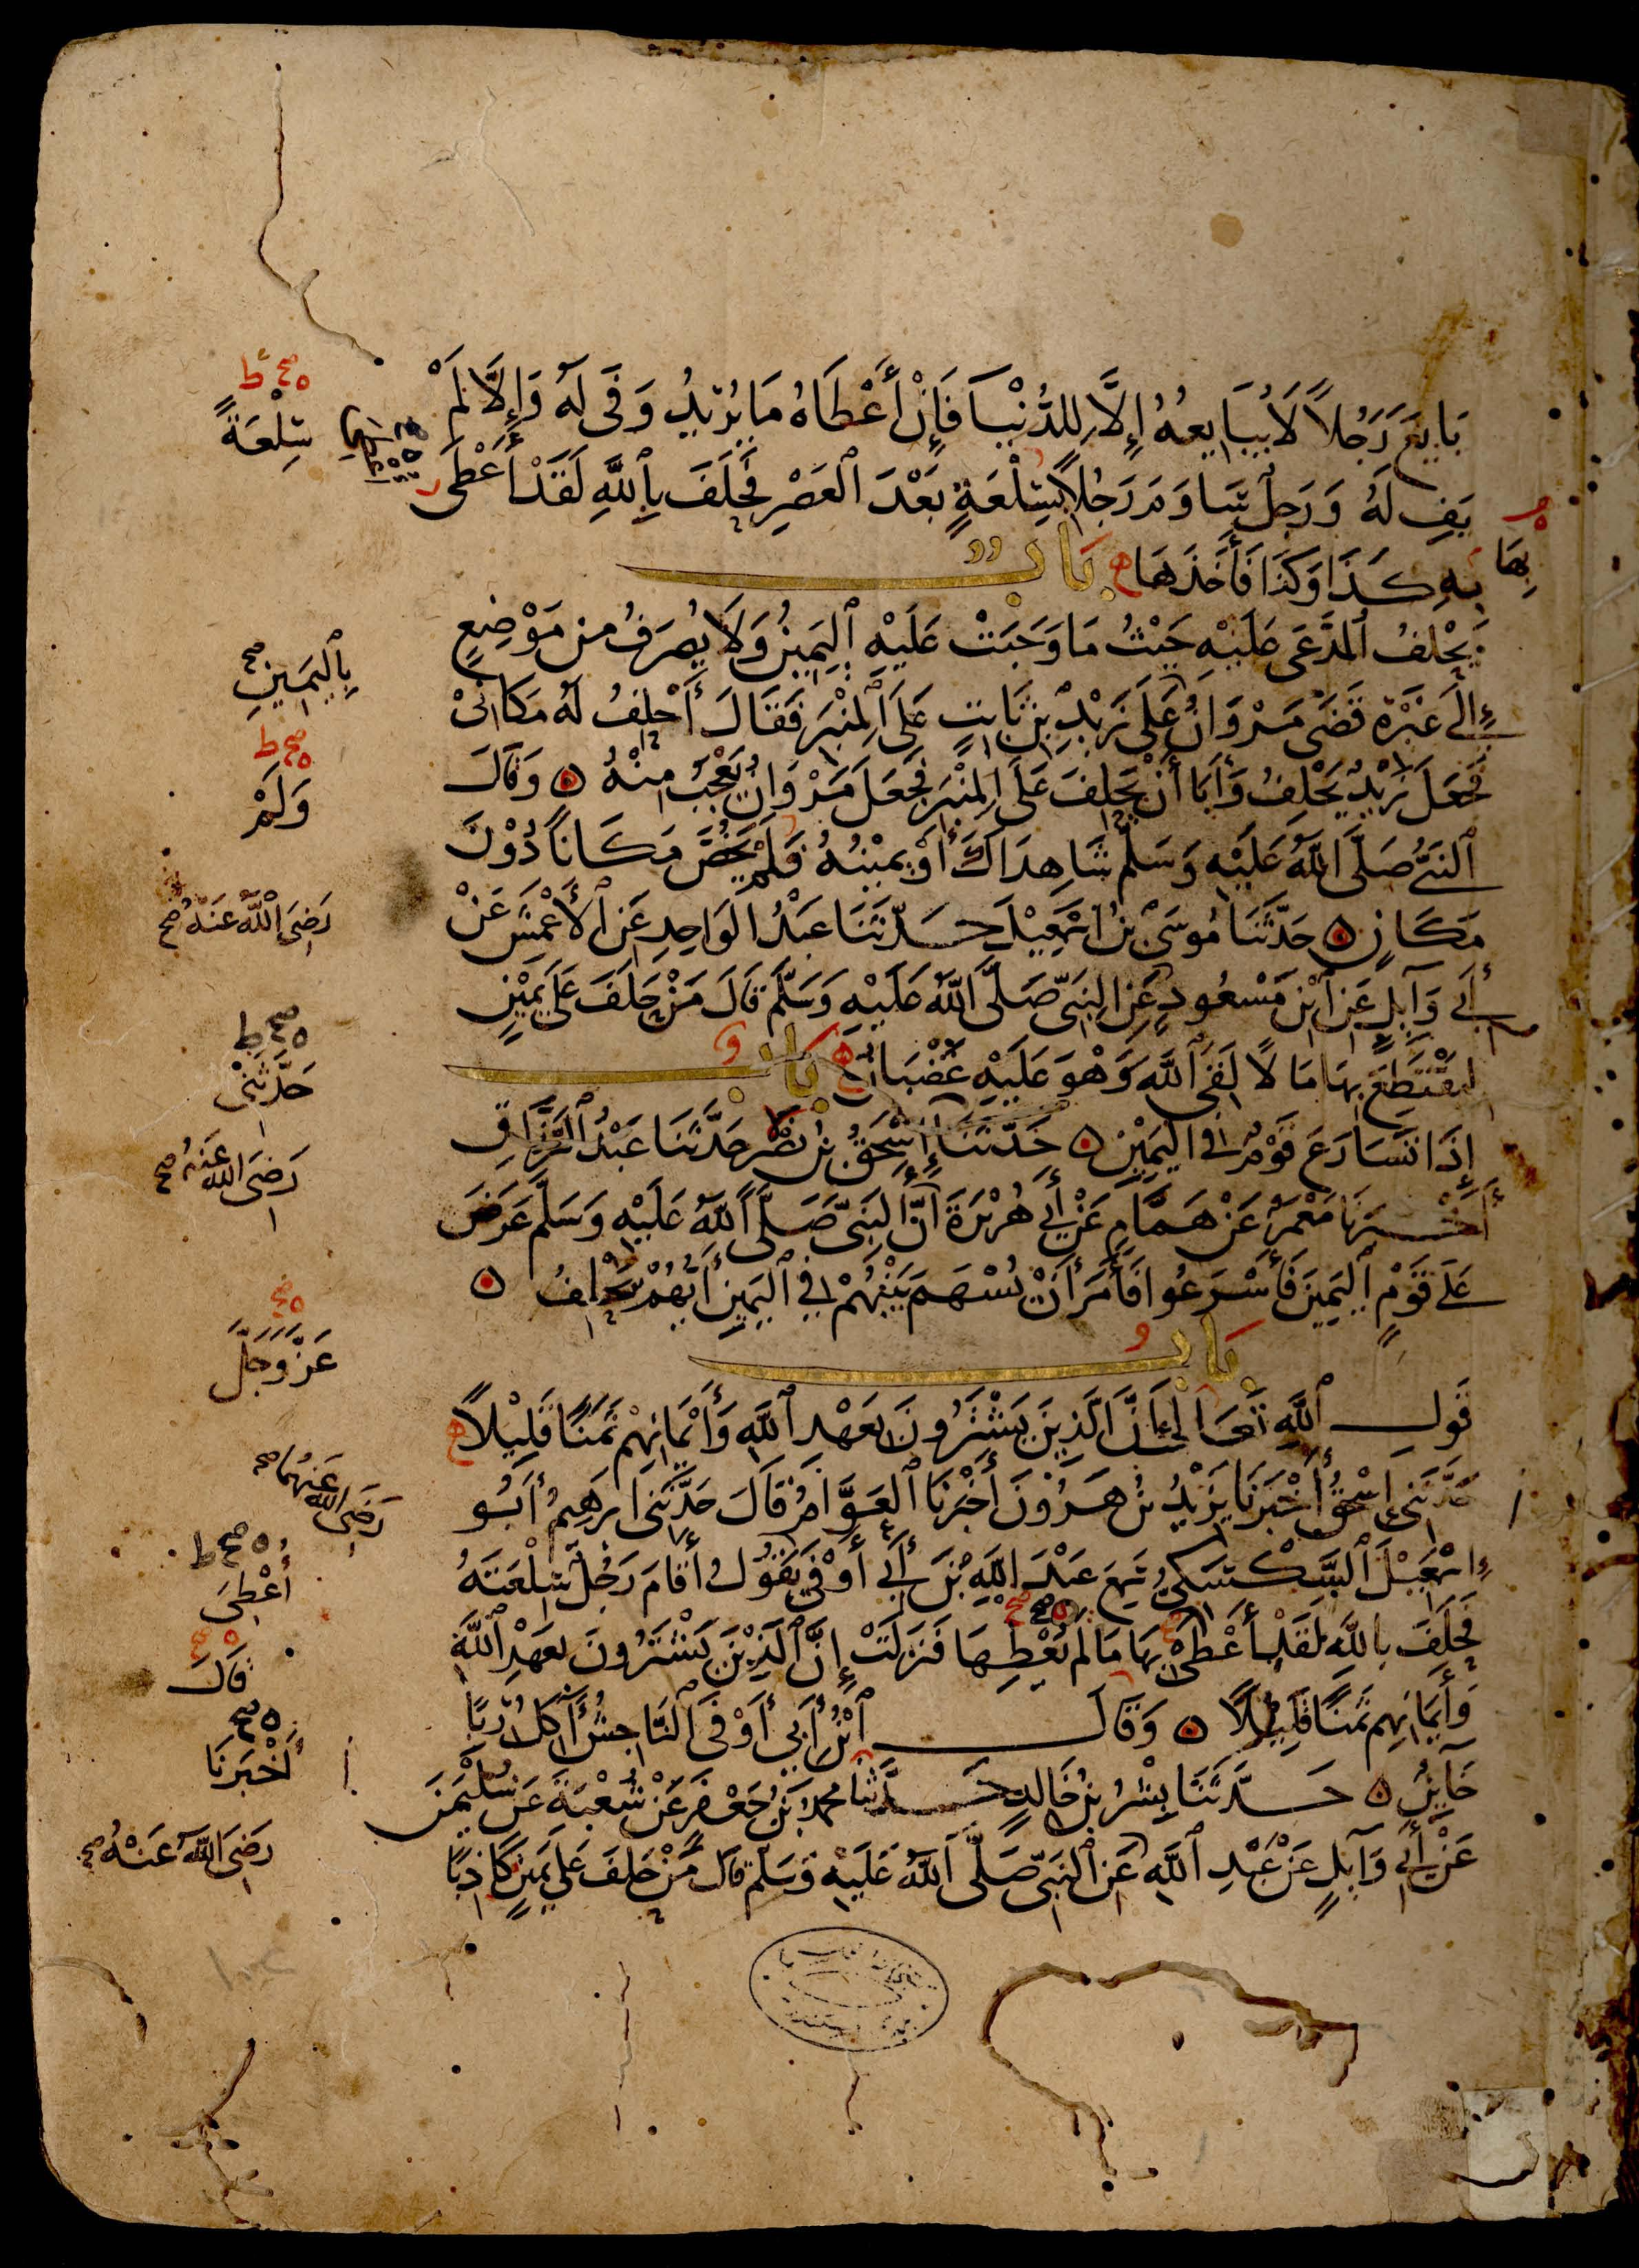 بَايَعَ رَجُلًا لَا يُبَايِعُهُ إِلَّا لِلدُّنْيَا فَإِنْ أَعْطَاهُ مَا يُرِيدُ وَفَى لَهُ وَإِلَّا لَمْ
يَفِ لَهُ وَرَجُلٌ سَاوَمَ رَجُلًا بِسِلْعَةٍ بَعْدَ ٱلْعَصْرِ فَحَلَفَ بِٱللَّهِ لَقَدْ أَعْطَى
بِهِ كَذَا وَكَذَا فَأَخَذَهَا بَابٌ
يَحْلِفُ ٱلْمُدَّعَى عَلَيْهِ حَيْثُ مَا وَجَبَتْ عَلَيْهِ ٱلْيَمِينُ وَلَا يُصْرَفُ مِنْ مَوْضِعٍ
إِلَى غَيْرِهِ قَضَى مَرْوَانُ عَلَى زَيْدِ بْنِ ثَابِتٍ عَلَى ٱلْمِنْبَرِ فَقَالَ أَحْلِفُ لَهُ مَكَانِي
فَجَعَلَ زَيْدٌ يَحْلِفُ وَأَبَا أَنْ يَحْلِفَ عَلَى ٱلْمِنْبَرِ فَجَعَلَ مَرْوَانُ يَعْجَبُ مِنْهُ ه وَقَالَ
ٱلنَّبِيُّ صَلَّى ٱللَّهُ عَلَيْهِ وَسَلَّمَ شَاهِدَاكَ أَوْ يَمِينُهُ فَلَمْ يَخُصَّ مَكَانًا دُوْنَ
مَكَانٍ ه حَدَّثَنَا مُوسَى بْنُ إِسْمَعِيْلَ حَدَّثَنَا عَبْدُ ٱلْوَاحِدِ عَنِ ٱلْأَعْمَشِ عَنْ
أَبِي وَآيِلٍ عَنِ ٱبْنِ مَسْعُودٍ عَنِ ٱلنَّبِيِّ صَلَّى ٱللَّهُ عَلَيْهِ وَسَلَّمَ قَالَ مَنْ حَلَفَ عَلَى يَمِيْنٍ
لِيَقْتَطِعَ بِهَا مَالًا لَقِيَ ٱللَّهَ وَهْوَ عَلَيْهِ غَضْبَانُ بَابٌ
إِذَا تَسَارَعَ قَوْمٌ فِي ٱلْيَمِيْنِ ه حَدَّثَنَا إِسْحَقُ بْنُ نَصْرٍ حَدَّثَنَا عَبْدُ ٱلرَّزَّاقِ
أَخْبَرَنَا مَعْمَرٌ عَنْ هَمَّامٍ عَنْ أَبِي هُرَيْرَةَ أَنَّ ٱلنَّبِيَّ صَلَّى ٱللَّهُ عَلَيْهِ وَسَلَّمَ عَرَضَ
عَلَى قَوْمٍ ٱلْيَمِيْنَ فَأَسْرَعُوا فَأَمَرَ أَنْ يُسْهَمَ بَيْنَهُمْ فِي ٱلْيَمِيْنِ أَيُّهُمْ يَحْلِفُ ه
بَابُ
قَوْلِ ٱللَّهِ تَعَالَى إِنَّ ٱلَّذِينَ يَشْتَرُونَ بِعَهْدِ ٱللَّهِ وَأَيْمَانِهِمْ ثَمَنًا قَلِيْلًا
حَدَّثَنِي إِسْحَقُ أَخْبَرَنَا يَزِيْدُ بْنُ هَرُوْنَ أَخْبَرَنَا ٱلْعَوَّامُ قَالَ حَدَّثَنِي إِبْرَهِيمُ أَبُو
إِسْمَعِيْلَ ٱلسَّكْسَكِيُّ سَمِعَ عَبْدَ ٱللَّهِ بْنَ أَبِي أَوْفَى يَقُوْلُ أَقَامَ رَجُلٌ سِلْعَتَهُ
فَحَلَفَ بِٱللَّهِ لَقَدْ أَعْطَى بِهَا مَا لَمْ يُعْطِهَا فَنَزَلَتْ إِنَّ ٱلَّذِيْنَ يَشْتَرُونَ بِعَهْدِ ٱللَّهِ
وَأَيْمَانِهِمْ ثَمَنًا قَلِيْلًا ه وَقَالَ ٱبْنُ أَبِي أَوْفَى ٱلنَّاجِشُ آكِلُ رِبًا
خَآيِنٌ ه حَدَّثَنَا بِشْرُ بْنُ خَالِدٍ حَدَّثَنَا مُحَمَّدُ بْنُ جَعْفَرٍ عَنْ شُعْبَةَ عَنْ سُلَيْمَنَ
عَنْ أَبِي وَآيِلٍ عَنْ عَبْدِ ٱللَّهِ عَنِ ٱلنَّبِيِّ صَلَّى ٱللَّهُ عَلَيْهِ وَسَلَّمَ قَالَ مَنْ حَلَفَ عَلَى يَمِيْنٍ كَاذِبًا
بِهَا
ه صح ط
سِلْعَةً
بِٱلْيَمِينِ صح
ه صح ط
وَلَمْ
رَضِيَ ٱللَّهُ عَنْهُ صح
ه صح ط
حَدَّثَنِيْ
رَضِيَ ٱللَّهُ عَنْهُ صح
ه صح
عَزَّ وَجَلَّ
رَضِيَ ٱللَّهُ عَنْهُمَا صح
ه صح ط
أُعْطِيَ
ه صح
قَالَ
ه صح
أَخْبَرَنَا
رَضِيَ ٱللَّهُ عَنْهُ صح